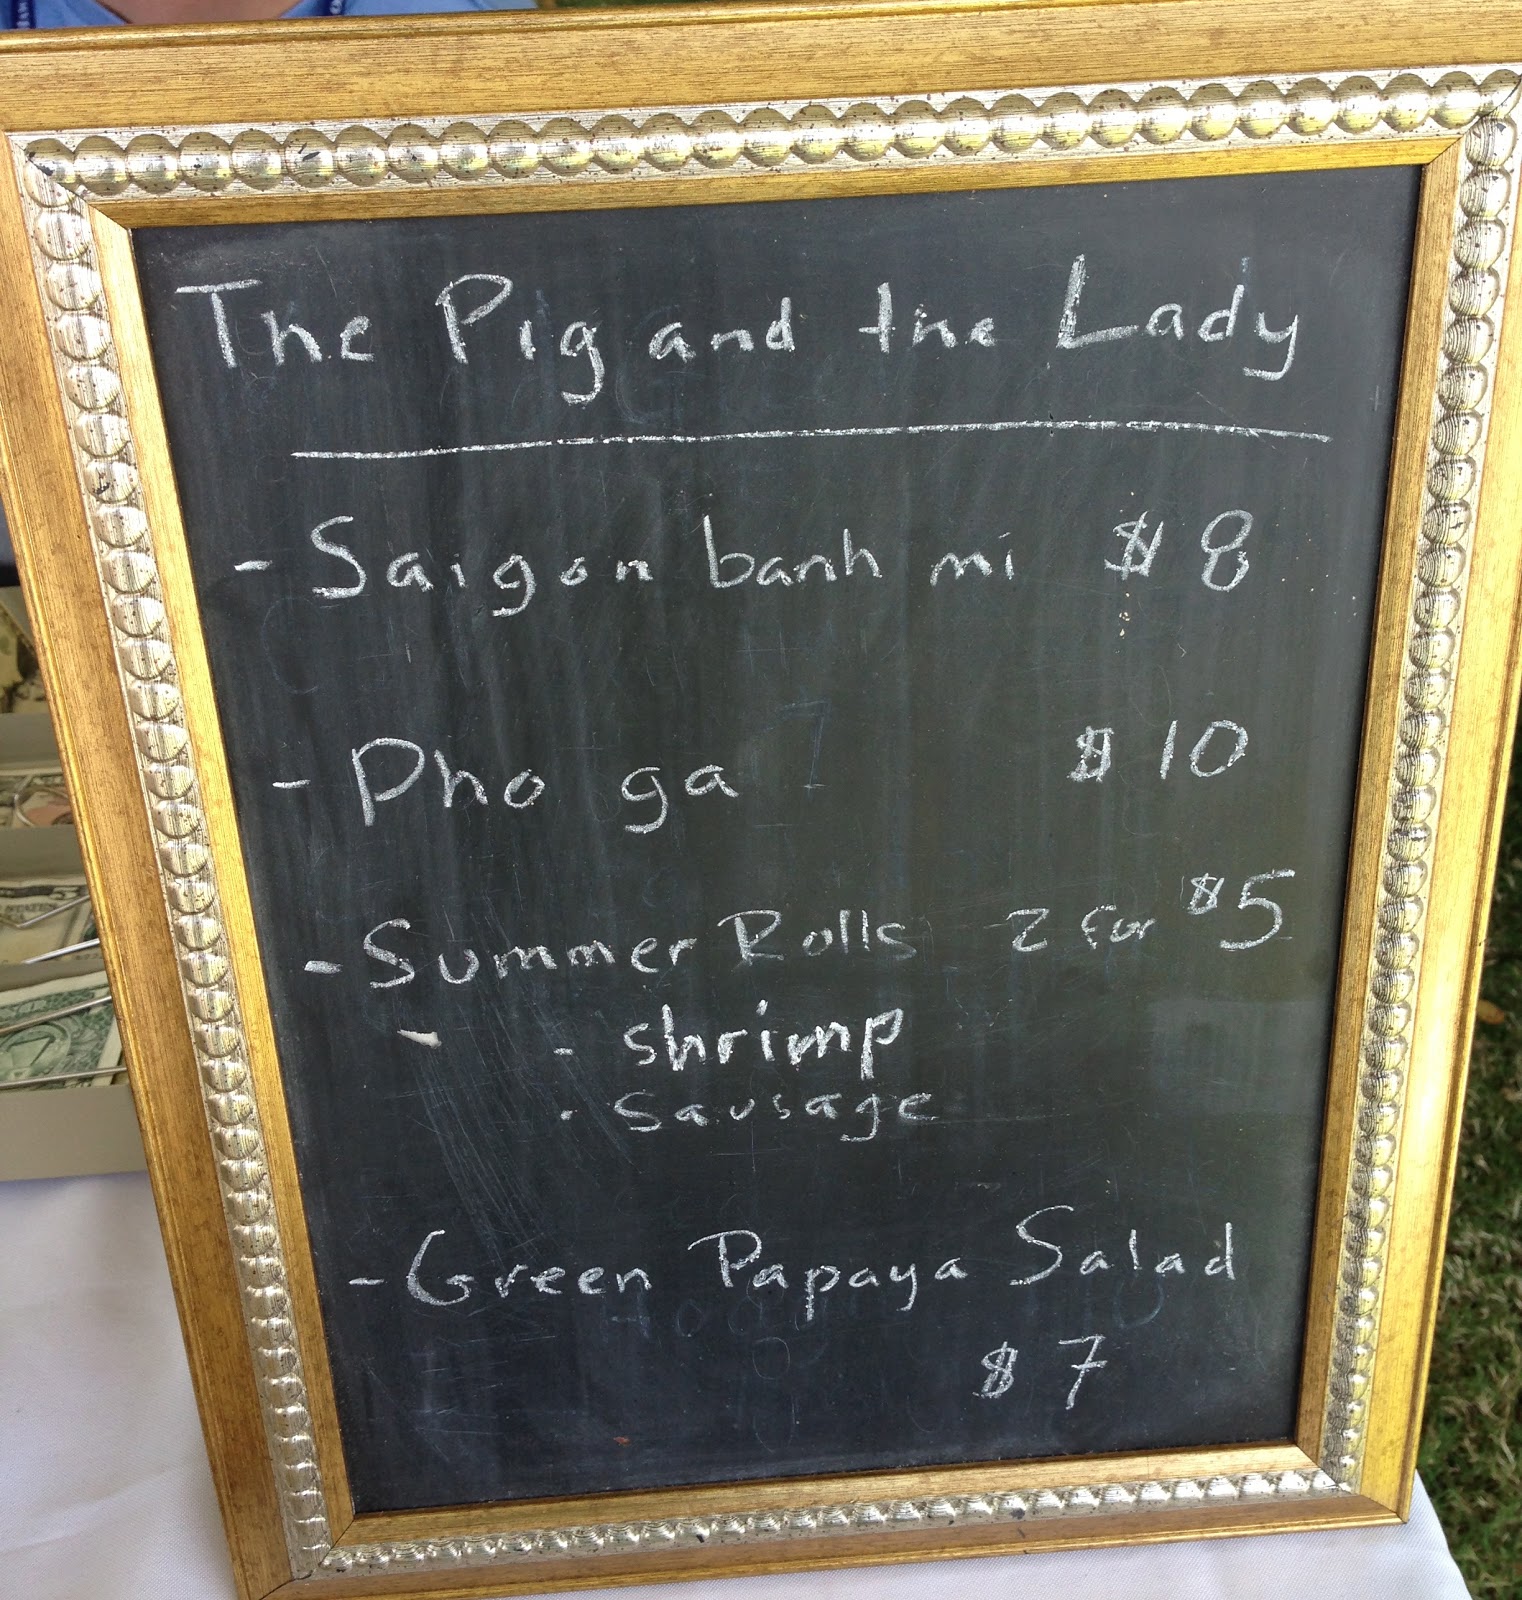 The Pig and the Lady
- Saigon banh mi $8
- Pho ga $10
- Summer Rolls 2 for $5
- shrimp
· sausage
- Green Papaya Salad
$7